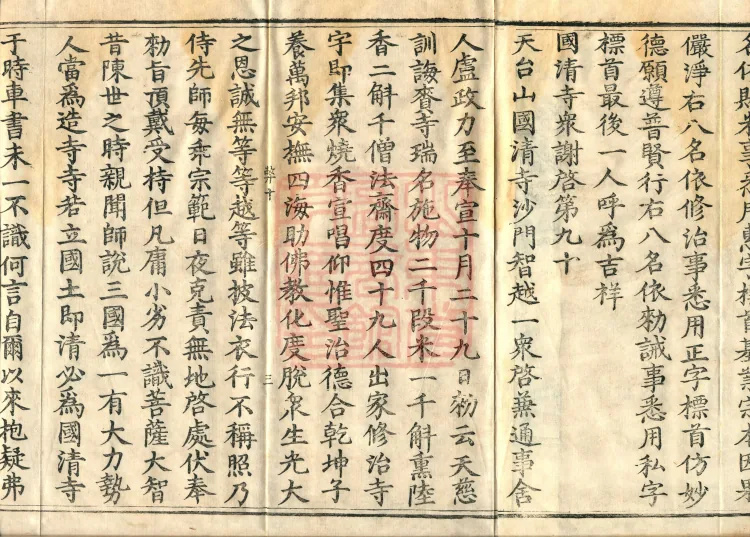 事悉用惠字標首基業字本因果
儼淨右八名依修治事悉用正字標首仿妙
德願遵普賢行右八名依勑誡事悉用私字
標首最後一人呼爲吉祥
國清寺衆謝啓第九十
天台山國清寺沙門智越一衆啓兼通事舍
人盧政力至奉宣十月二十九日勑云天慈
訓誨賚寺瑞名施物二千段米一千斛熏陸
香二斛千僧法齋度四十九人出家修治寺
字即集衆燒香宣唱仰惟聖治德合乾坤子
養萬邦安撫四海助佛教化度脫衆生光大
三
之恩誠無等等越等雖披法衣行不稱照乃
侍先師每乖宗範日夜克責無地啓處伏奉
勑旨頂戴受持但凡庸小劣不識菩薩大智
昔陳世之時親聞師說三國爲一有大力勢
人當爲造寺寺若立國土即清必爲國清寺
于時車書未一不識何言自爾以來抱疑弗